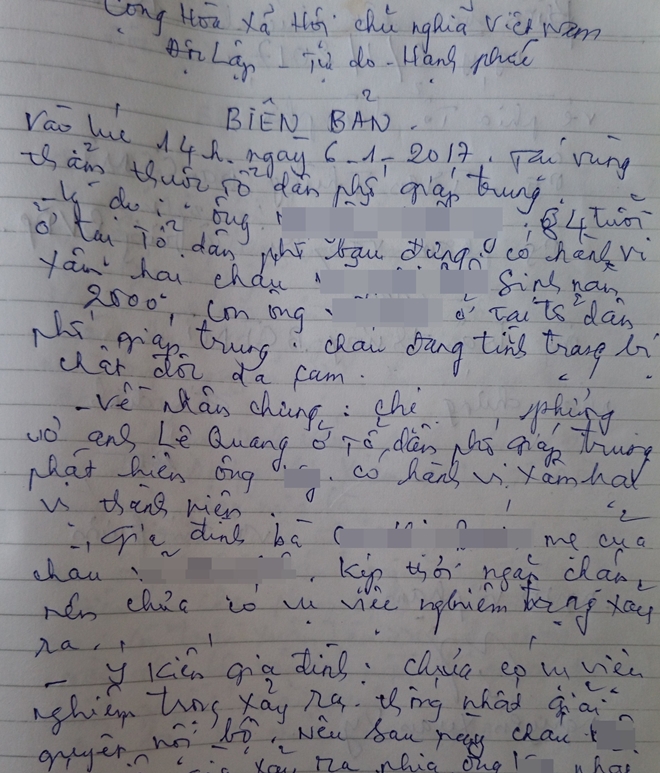 Cộng Hòa Xã Hội chủ nghĩa Việt Nam
Độc Lập - Tự do - Hạnh phúc
BIÊN BẢN.
Vào lúc 14h. ngày 6-1-2017. Tại vùng
thẩm thuộc tổ dân phố giáp trung.
- Lý do: ông 84 tuổi
ở tại Tổ dân phố Bàu đứng có hành vi
xâm hại cháu Sinh năm
2000, con ông ở tại tổ dân
phố giáp trung. cháu đang tình trạng bị
chất độc da cam.
- Về nhân chứng: chị phượng
vợ anh Lê Quang ở Tổ dân phố giáp trung
phát hiện ông có hành vi xâm hại
vị thành niên.
- Gia đình bà mẹ của
cháu . Kịp thời ngăn chặn,
nên chưa có vụ việc nghiêm trọng xảy
ra.
- Ý kiến gia đình: chưa có vụ việc
nghiêm trọng xảy ra. thống nhất giải
quyết nội bộ. Nếu sau này cháu
xảy ra phía ông